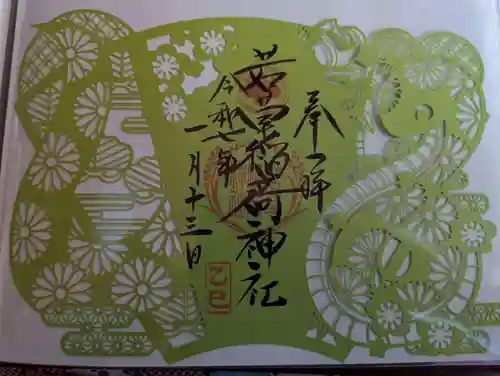 奉拝
若宮稲荷神社
令和七年
一月十三日
乙巳